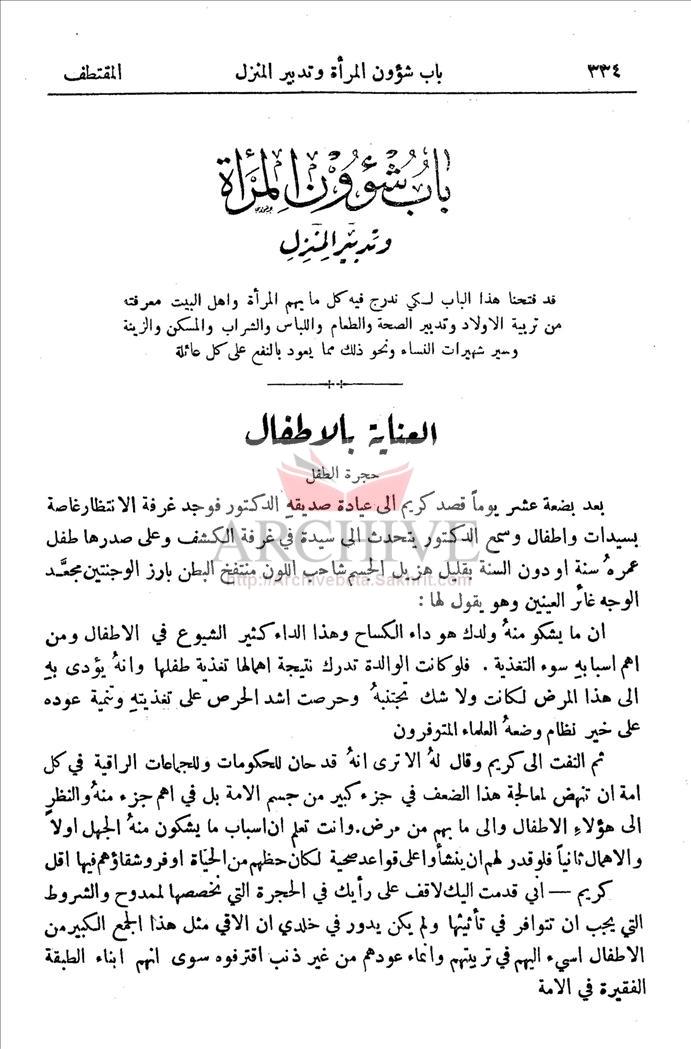 ٣٣٤ باب شؤون المرأة وتدبير المنزل المقتطف
باب شؤون المرأة
وتدبير المنزل
قد فتحنا هذا الباب لكي ندرج فيه كل ما يهم المرأة واهل البيت معرفته
من تربية الاولاد وتدبير الصحة والطعام واللباس والشراب والمسكن والزينة
وسير شهيرات النساء ونحو ذلك مما يعود بالنفع على كل عائلة
العناية بالاطفال
حجرة الطفل
بعد بضعة عشر يوماً قصد كريم الى عيادة صديقهِ الدكتور فوجد غرفة الانتظار غاصة
بسيدات واطفال وسمع الدكتور يتحدث الى سيدة في غرفة الكشف وعلى صدرها طفل
عمرهُ سنة او دون السنة بقليل هزيل الجسم شاحب اللون منتفخ البطن بارز الوجنتين مجعَّد
الوجه غائر العينين وهو يقول لها :
ان ما يشكو منهُ ولدك هو داء الكساح وهذا الداء كثير الشيوع في الاطفال ومن
اهم اسبابهِ سوء التغذية . فلو كانت الوالدة تدرك نتيجة اهمالها تغذية طفلها وانهُ يؤدى بهِ
الى هذا المرض لكانت ولا شك تجتنبهُ وحرصت اشد الحرص على تغذيتهِ وتنمية عوده
على خير نظام وضعهُ العلماء المتوفرون
ثم التفت الى كريم وقال لهُ الا ترى انهُ قد حان للحكومات وللجماعات الراقية في كل
امة ان تنهض لمعالجة هذا الضعف في جزء كبير من جسم الامة بل في اهم جزء منهُ والنظر
الى هؤلاءِ الاطفال والى ما بهم من مرض. وانت تعلم ان اسباب ما يشكون منهُ الجهل اولاً
والاهمال ثانياً فلو قدر لهم ان ينشأوا على قواعد صحية لكان حظهم من الحياة اوفر وشقاؤهم فيها اقل
كريم — أني قدمت اليك لاقف على رأيك في الحجرة التي نخصصها لممدوح والشروط
التي يجب ان تتوافر في تأثيثها ولم يكن يدور في خلدي ان الاقي مثل هذا الجمع الكبير من
الاطفال اسيء اليهم في تربيتهم وانماء عودهم من غير ذنب اقترفوه سوى انهم ابناء الطبقة
الفقيرة في الامة
ARCHIVE
http://Archivebeta.Sakhrit.com